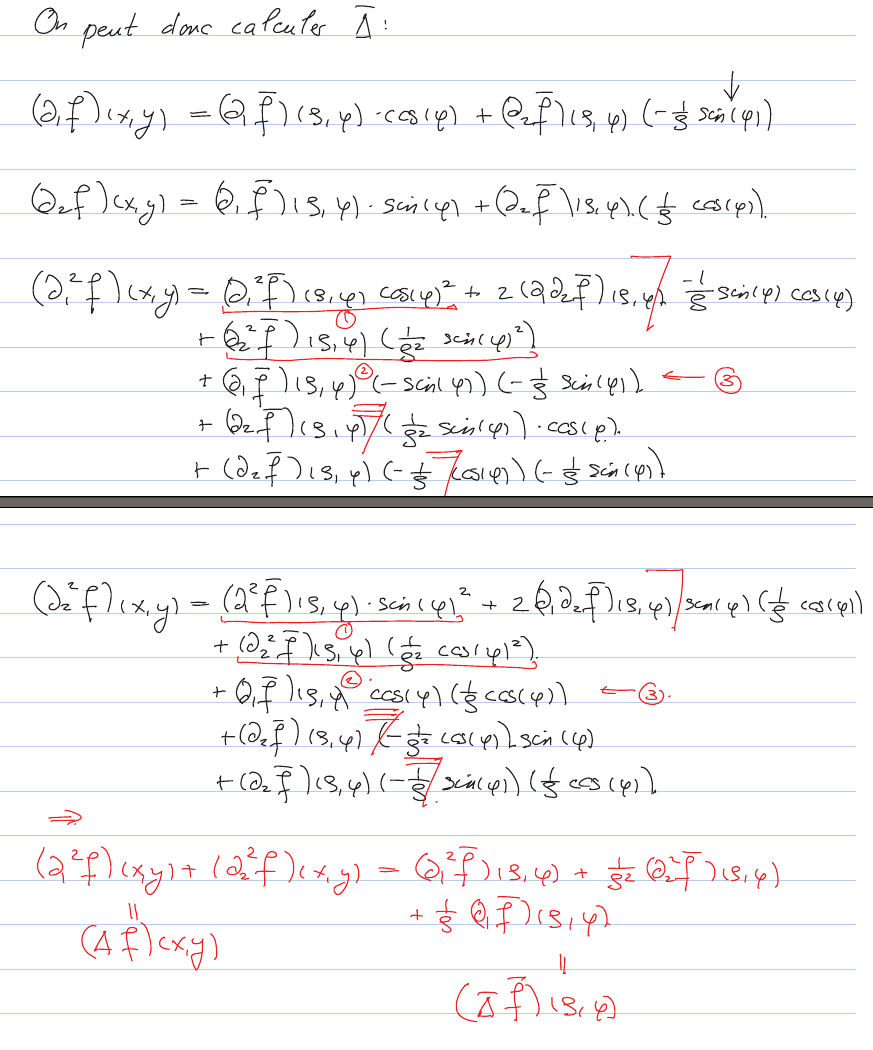 On peut donc calculer Δ̄ :
↓
(∂₁f)(x,y) = (∂₁f̄)(ρ,φ) · cos(φ) + (∂₂f̄)(ρ,φ) (-1/ρ sin(φ))
(∂₂f)(x,y) = (∂₁f̄)(ρ,φ) · sin(φ) + (∂₂f̄)(ρ,φ) · (1/ρ cos(φ)).
(∂₁²f)(x,y) = (∂₁²f̄)(ρ,φ) cos(φ)² + 2 (∂₁∂₂f̄)(ρ,φ) -1/ρ sin(φ) cos(φ)
①
+ (∂₂²f̄)(ρ,φ) (1/ρ² sin(φ)²)
②
+ (∂₁f̄)(ρ,φ) (-sin(φ)) (-1/ρ sin(φ)). ← ③
+ (∂₂f̄)(ρ,φ) (1/ρ² sin(φ)) · cos(φ).
+ (∂₂f̄)(ρ,φ) (-1/ρ cos(φ)) (-1/ρ sin(φ))
(∂₂²f)(x,y) = (∂²f̄)(ρ,φ) · sin(φ)² + 2(∂₁∂₂f̄)(ρ,φ) sin(φ) (1/ρ cos(φ))
①
+ (∂₂²f̄)(ρ,φ) (1/ρ² cos(φ)²).
②
+ (∂₁f̄)(ρ,φ) cos(φ) (1/ρ cos(φ)) ← ③.
+ (∂₂f̄)(ρ,φ) (-1/ρ² cos(φ)) sin(φ)
+ (∂₂f̄)(ρ,φ) (-1/ρ sin(φ)) (1/ρ cos(φ)).
⇒
(∂²f)(x,y) + (∂₂²f)(x,y) = (∂₁²f̄)(ρ,φ) + 1/ρ² (∂₂²f̄)(ρ,φ)
+ 1/ρ (∂₁f̄)(ρ,φ)
||
(Δf)(x,y)
||
(Δ̄ f̄)(ρ,φ)